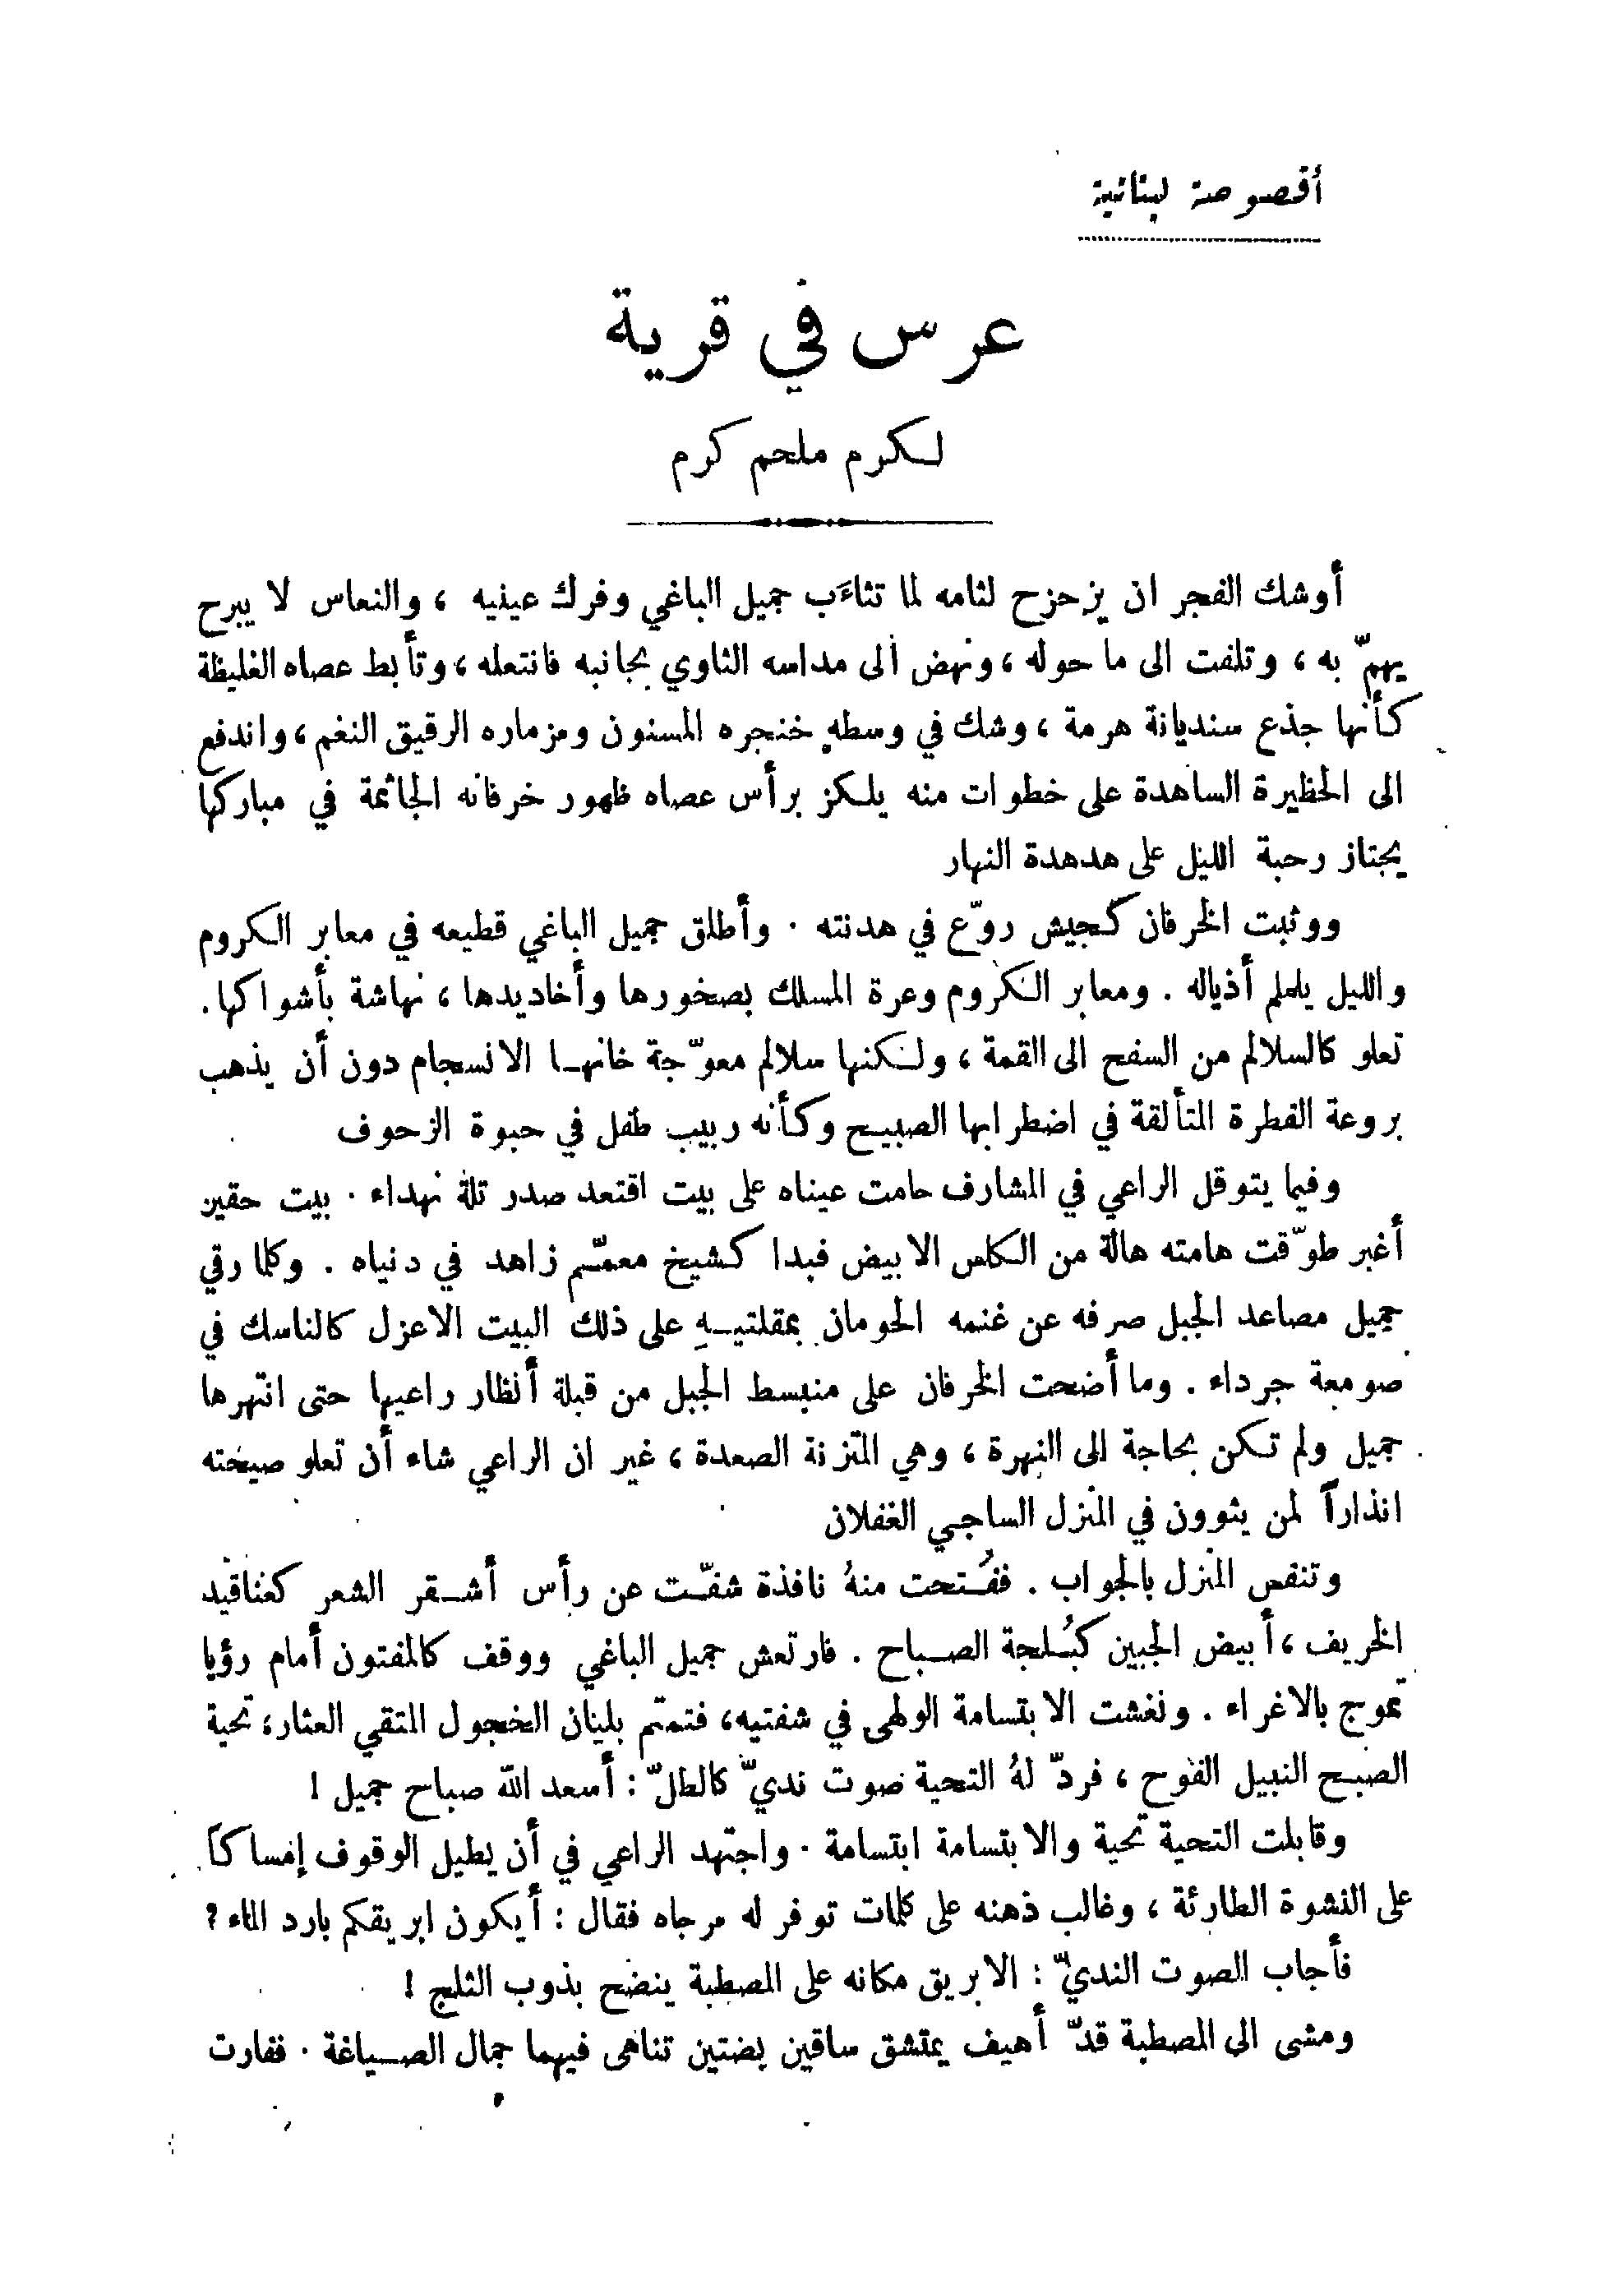 أقصوصة لبنانية
عرس في قرية
لكرم ملحم كرم
أوشك الفجر ان يزحزح لثامه لما تثاءَب جميل الباغي وفرك عينيه ، والنعاس لا يبرح
يهمّ به ، وتلفت الى ما حوله ، ونهض الى مداسه الثاوي بجانبه فانتعله ، وتأبط عصاه الغليظة
كأنها جذع سنديانة هرمة ، وشك في وسطهِ خنجره المسنون ومزماره الرقيق النغم ، واندفع
الى الحظيرة الساهدة على خطوات منه يلكز برأس عصاه ظهور خرفانه الجاثمة في مباركها
يجتاز رحبة الليل على هدهدة النهار
ووثبت الخرفان كجيش روّع في هدنته . وأطلق جميل الباغي قطيعه في معابر الكروم
والليل يلملم أذياله . ومعابر الكروم وعرة المسلك بصخورها وأخاديدها ، نهاشة بأشواكها .
تعلو كالسلالم من السفح الى القمة ، ولكنها سلالم معوّجة خانها الانسجام دون أن يذهب
بروعة الفطرة المتألقة في اضطرابها الصبيح وكأنه ربيب طفل في حبوة الزحوف
وفيما يتوقل الراعي في المشارف حامت عيناه على بيت اقتعد صدر تلة نهداء . بيت حقير
أغبر طوّقت هامته هالة من الكلس الابيض فبدا كشيخ معمّم زاهد في دنياه . وكلما رقي
جميل مصاعد الجبل صرفه عن غنمه الحومان بمقلتيهِ على ذلك البيت الاعزل كالناسك في
صومعة جرداء . وما أضحت الخرفان على منبسط الجبل من قبلة أنظار راعيها حتى انتهرها
جميل ولم تكن بحاجة الى النهرة ، وهي المتزنة الصعدة ، غير ان الراعي شاء أن تعلو صيحته
انذاراً لمن يثوون في المنزل الساجي الغفلان
وتنفس المنزل بالجواب . ففُتحت منهُ نافذة شفّت عن رأس أشقر الشعر كعناقيد
الخريف ، أبيض الجبين كبُلجة الصباح . فارتعش جميل الباغي ووقف كالمفتون أمام رؤيا
تموج بالاغراء . ونغشت الابتسامة الولهى في شفتيه ، فتمتم بلينان الخجول المتقي العثار ، تحية
الصبح النبيل الفوح ، فردّ لهُ التحية صوت نديّ كالطلّ : أسعد الله صباح جميل !
وقابلت التحية تحية والابتسامة ابتسامة . واجتهد الراعي في أن يطيل الوقوف إمساكاً
على النشوة الطارئة ، وغالب ذهنه على كلمات توفر له مرجاه فقال : أيكون ابريقكم بارد الماء ؟
فأجاب الصوت النديّ : الابريق مكانه على المصطبة ينضح بذوب الثلج !
ومشى الى المصطبة قدّ أهيف يمتشق ساقين بضتين تناهى فيهما جمال الصياغة . ففارت